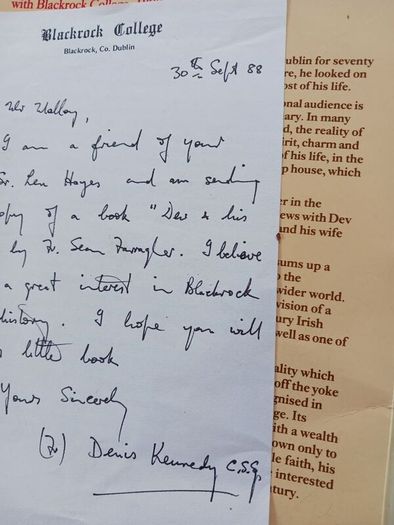 with Blackrock College
Blackrock College
Blackrock, Co. Dublin
30th Sept 88
Mr Malloy,
I am a friend of your
Sr. Len Hayes and am sending
copy of a book "Dev & his
by Fr. Sean Farragher. I believe
a great interest in Blackrock
history. I hope you will
little book
Yours Sincerely
(Fr) Denis Kennedy C.S.Sp.
ublin for seventy
re, he looked on
ost of his life.
onal audience is
ary. In many
d, the reality of
irit, charm and
of his life, in the
p house, which
er in the
ews with Dev
und his wife
sums up a
the
wider world.
vision of a
ury Irish
well as one of
ality which
off the yoke
gnised in
ge. Its
ith a wealth
own only to
le faith, his
interested
tury.